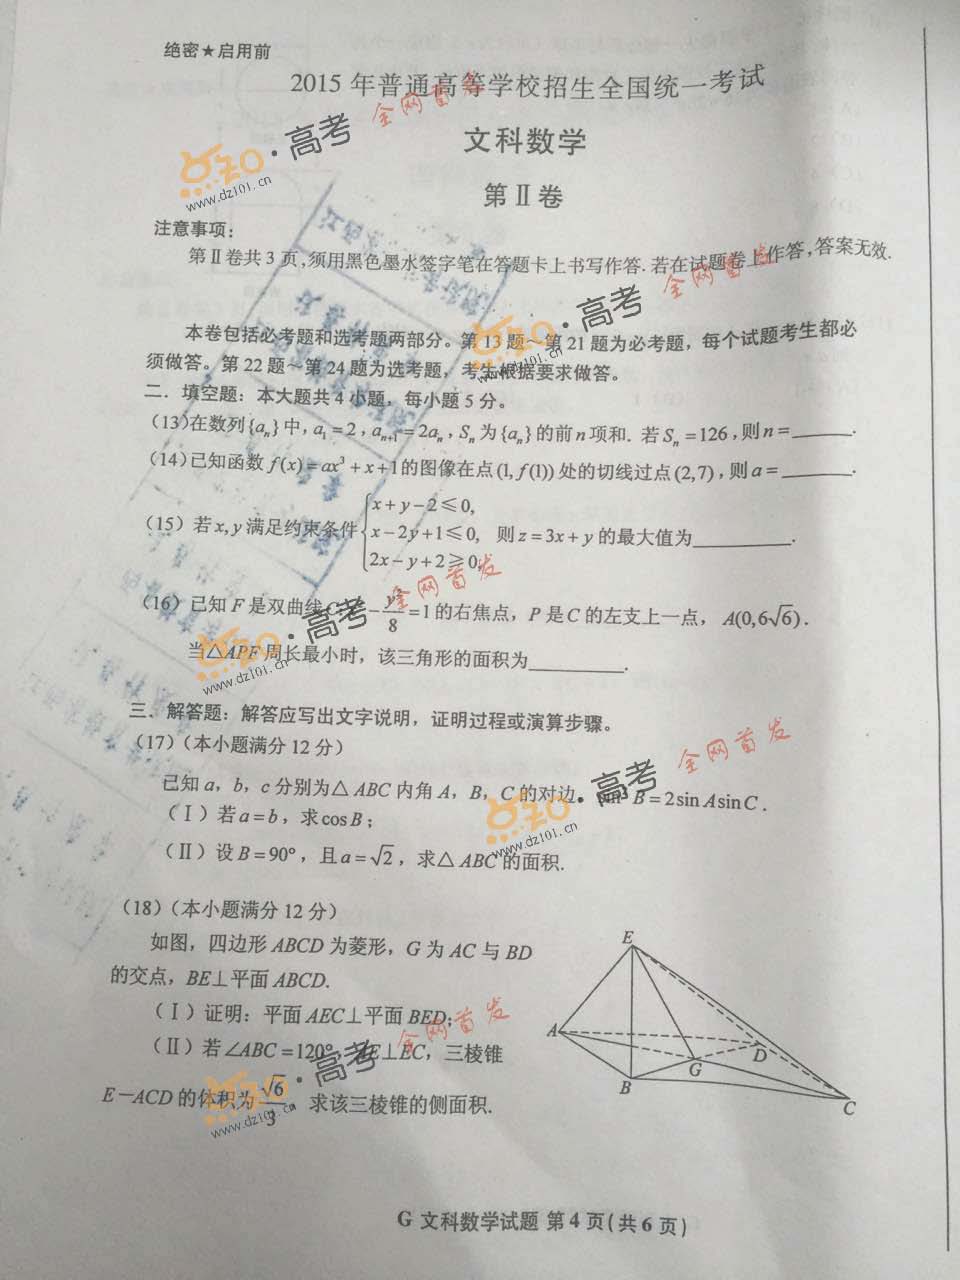 绝密★启用前
2015年普通高等学校招生全国统一考试
全网首发
点知·高考
www.dz101.cn
文科数学
第Ⅱ卷
注意事项:
第Ⅱ卷共3页,须用黑色墨水签字笔在答题卡上书写作答.若在试题卷上作答,答案无效.
全网首发
高考
www.dz101.cn
本卷包括必考题和选考题两部分。第13题～第21题为必考题，每个试题考生都必
须做答。第22题～第24题为选考题，考生根据要求做答。
二．填空题：本大题共4小题，每小题5分。
(13)在数列{aₙ}中, a₁=2, aₙ₊₁=2aₙ, Sₙ为{aₙ}的前n项和. 若Sₙ=126,则n=______.
(14)已知函数f(x)=ax³+x+1的图像在点(1, f(1))处的切线过点(2,7),则a=______.
x+y−2⩽0,
(15) 若x,y满足约束条件 x−2y+1⩽0, 则z=3x+y的最大值为________.
2x−y+2⩾0,
全网首发
(16) 已知F是双曲线 − y²/8 =1的右焦点，P是C的左支上一点，A(0,6√6).
高考
www.dz101.cn
当△APF周长最小时，该三角形的面积为________.
三．解答题：解答应写出文字说明，证明过程或演算步骤。
(17)(本小题满分12分)
全网首发
已知a，b，c分别为△ABC内角A，B，C的对边， sin²B=2sinAsinC.
高考
www.dz101.cn
(Ⅰ)若a=b，求cosB;
(Ⅱ)设B=90°，且a=√2，求△ABC的面积.
(18)(本小题满分12分)
如图，四边形ABCD为菱形，G为AC与BD
的交点，BE⊥平面ABCD.
(Ⅰ)证明：平面AEC⊥平面BED;
全网首发
(Ⅱ)若∠ABC=120°， AE⊥EC，三棱锥
高考
www.dz101.cn
E−ACD的体积为√6/3，求该三棱锥的侧面积.
E
A
D
G
B
C
G 文科数学试题 第4页(共6页)